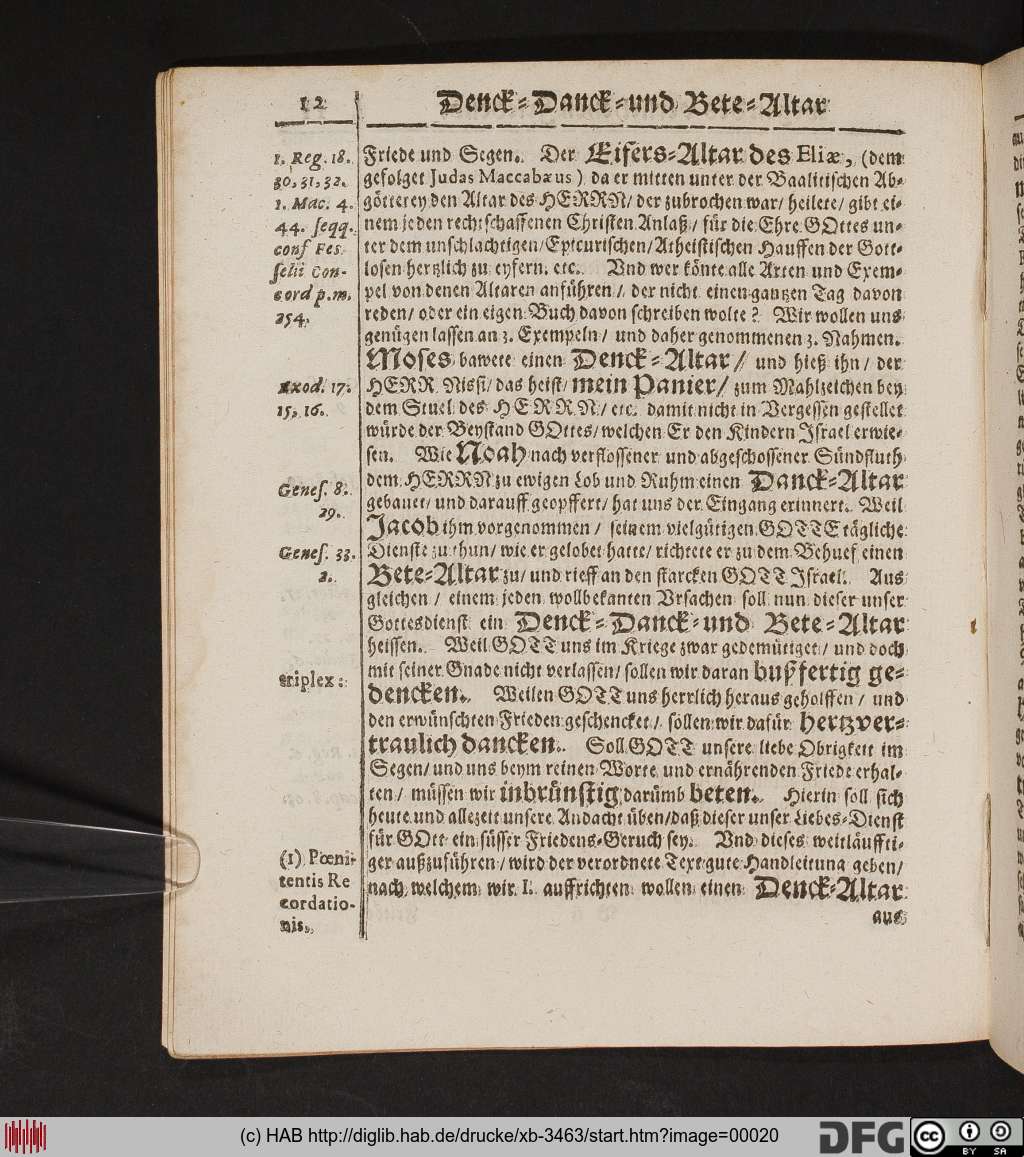 12
Denck-Danck-und Bete-Altar
1. Reg. 18.
30. 31. 32.
1. Mac. 4.
44. seqq.
conf Fes-
selii Con-
cord p. m.
254.
Exod. 17.
15. 16.
Genes. 8.
29.
Genes. 33.
2.
triplex:
(1) Pœni-
tentis Re
cordatio-
nis.
Friede und Segen. Der Eifers-Altar des Eliæ, (dem
gefolget Judas Maccabæus) da er mitten unter der Baalitischen Ab-
götterey den Altar des HERRN/ der zubrochen war/ heilete/ gibt ei-
nem jeden rechtschaffenen Christen Anlaß/ für die Ehre GOttes un-
ter dem unschlachtigen/ Epicurischen/ Atheistischen Hauffen der Gott-
losen hertzlich zu eyfern. etc. Vnd wer könte alle Arten und Exem-
pel von denen Altaren anführen/ der nicht einen gantzen Tag davon
reden/ oder ein eigen Buch davon schreiben wolte? Wir wollen uns
genügen lassen an 3. Exempeln/ und daher genommenen 3. Nahmen.
Moses bawete einen Denck-Altar/ und hieß ihn/ der
HERR Nissi/ das heist/ mein Panier/ zum Mahlzeichen bey
dem Stuel des HERRN/ etc. damit nicht in Vergessen gestellet
würde der Beystand GOttes/ welchen Er den Kindern Israel erwie-
sen. Wie Noah nach verflossener und abgeschossener Sündfluth
dem HERRN zu ewigen Lob und Ruhm einen Danck-Altar
gebauet/ und darauff geopffert/ hat uns der Eingang erinnert. Weil
Jacob ihm vorgenommen/ seinem vielgütigen GOTTE tägliche
Dienste zu thun/ wie er gelobet hatte/ richtete er zu dem Behuef einen
Bete-Altar zu/ und rieff an den starcken GOTT Israel. Aus
gleichen/ einem jeden wollbekanten Vrsachen soll nun dieser unser
Gottesdienst ein Denck-Danck-und Bete-Altar
heissen. Weil GOTT uns im Kriege zwar gedemütiget/ und doch
mit seiner Gnade nicht verlassen/ sollen wir daran bußfertig ge-
dencken. Weilen GOTT uns herrlich heraus geholffen/ und
den erwünschten Frieden geschencket/ sollen wir dafür hertzver-
traulich dancken. Soll GOTT unsere liebe Obrigkeit im
Segen/ und uns beym reinen Worte und ernährenden Friede erhal-
ten/ müssen wir inbrünstig darümb beten. Hierin soll sich
heute und allezeit unsere Andacht üben/ daß dieser unser Liebes-Dienst
für GOtt ein süsser Friedens-Geruch sey. Vnd dieses weitläuffti-
ger außzuführen/ wird der verordnete Text gute Handleitung geben/
nach welchem wir I. auffrichten wollen einen Denck-Altar
aus
(c) HAB http://diglib.hab.de/drucke/xb-3463/start.htm?image=00020
DFG
cc BY SA